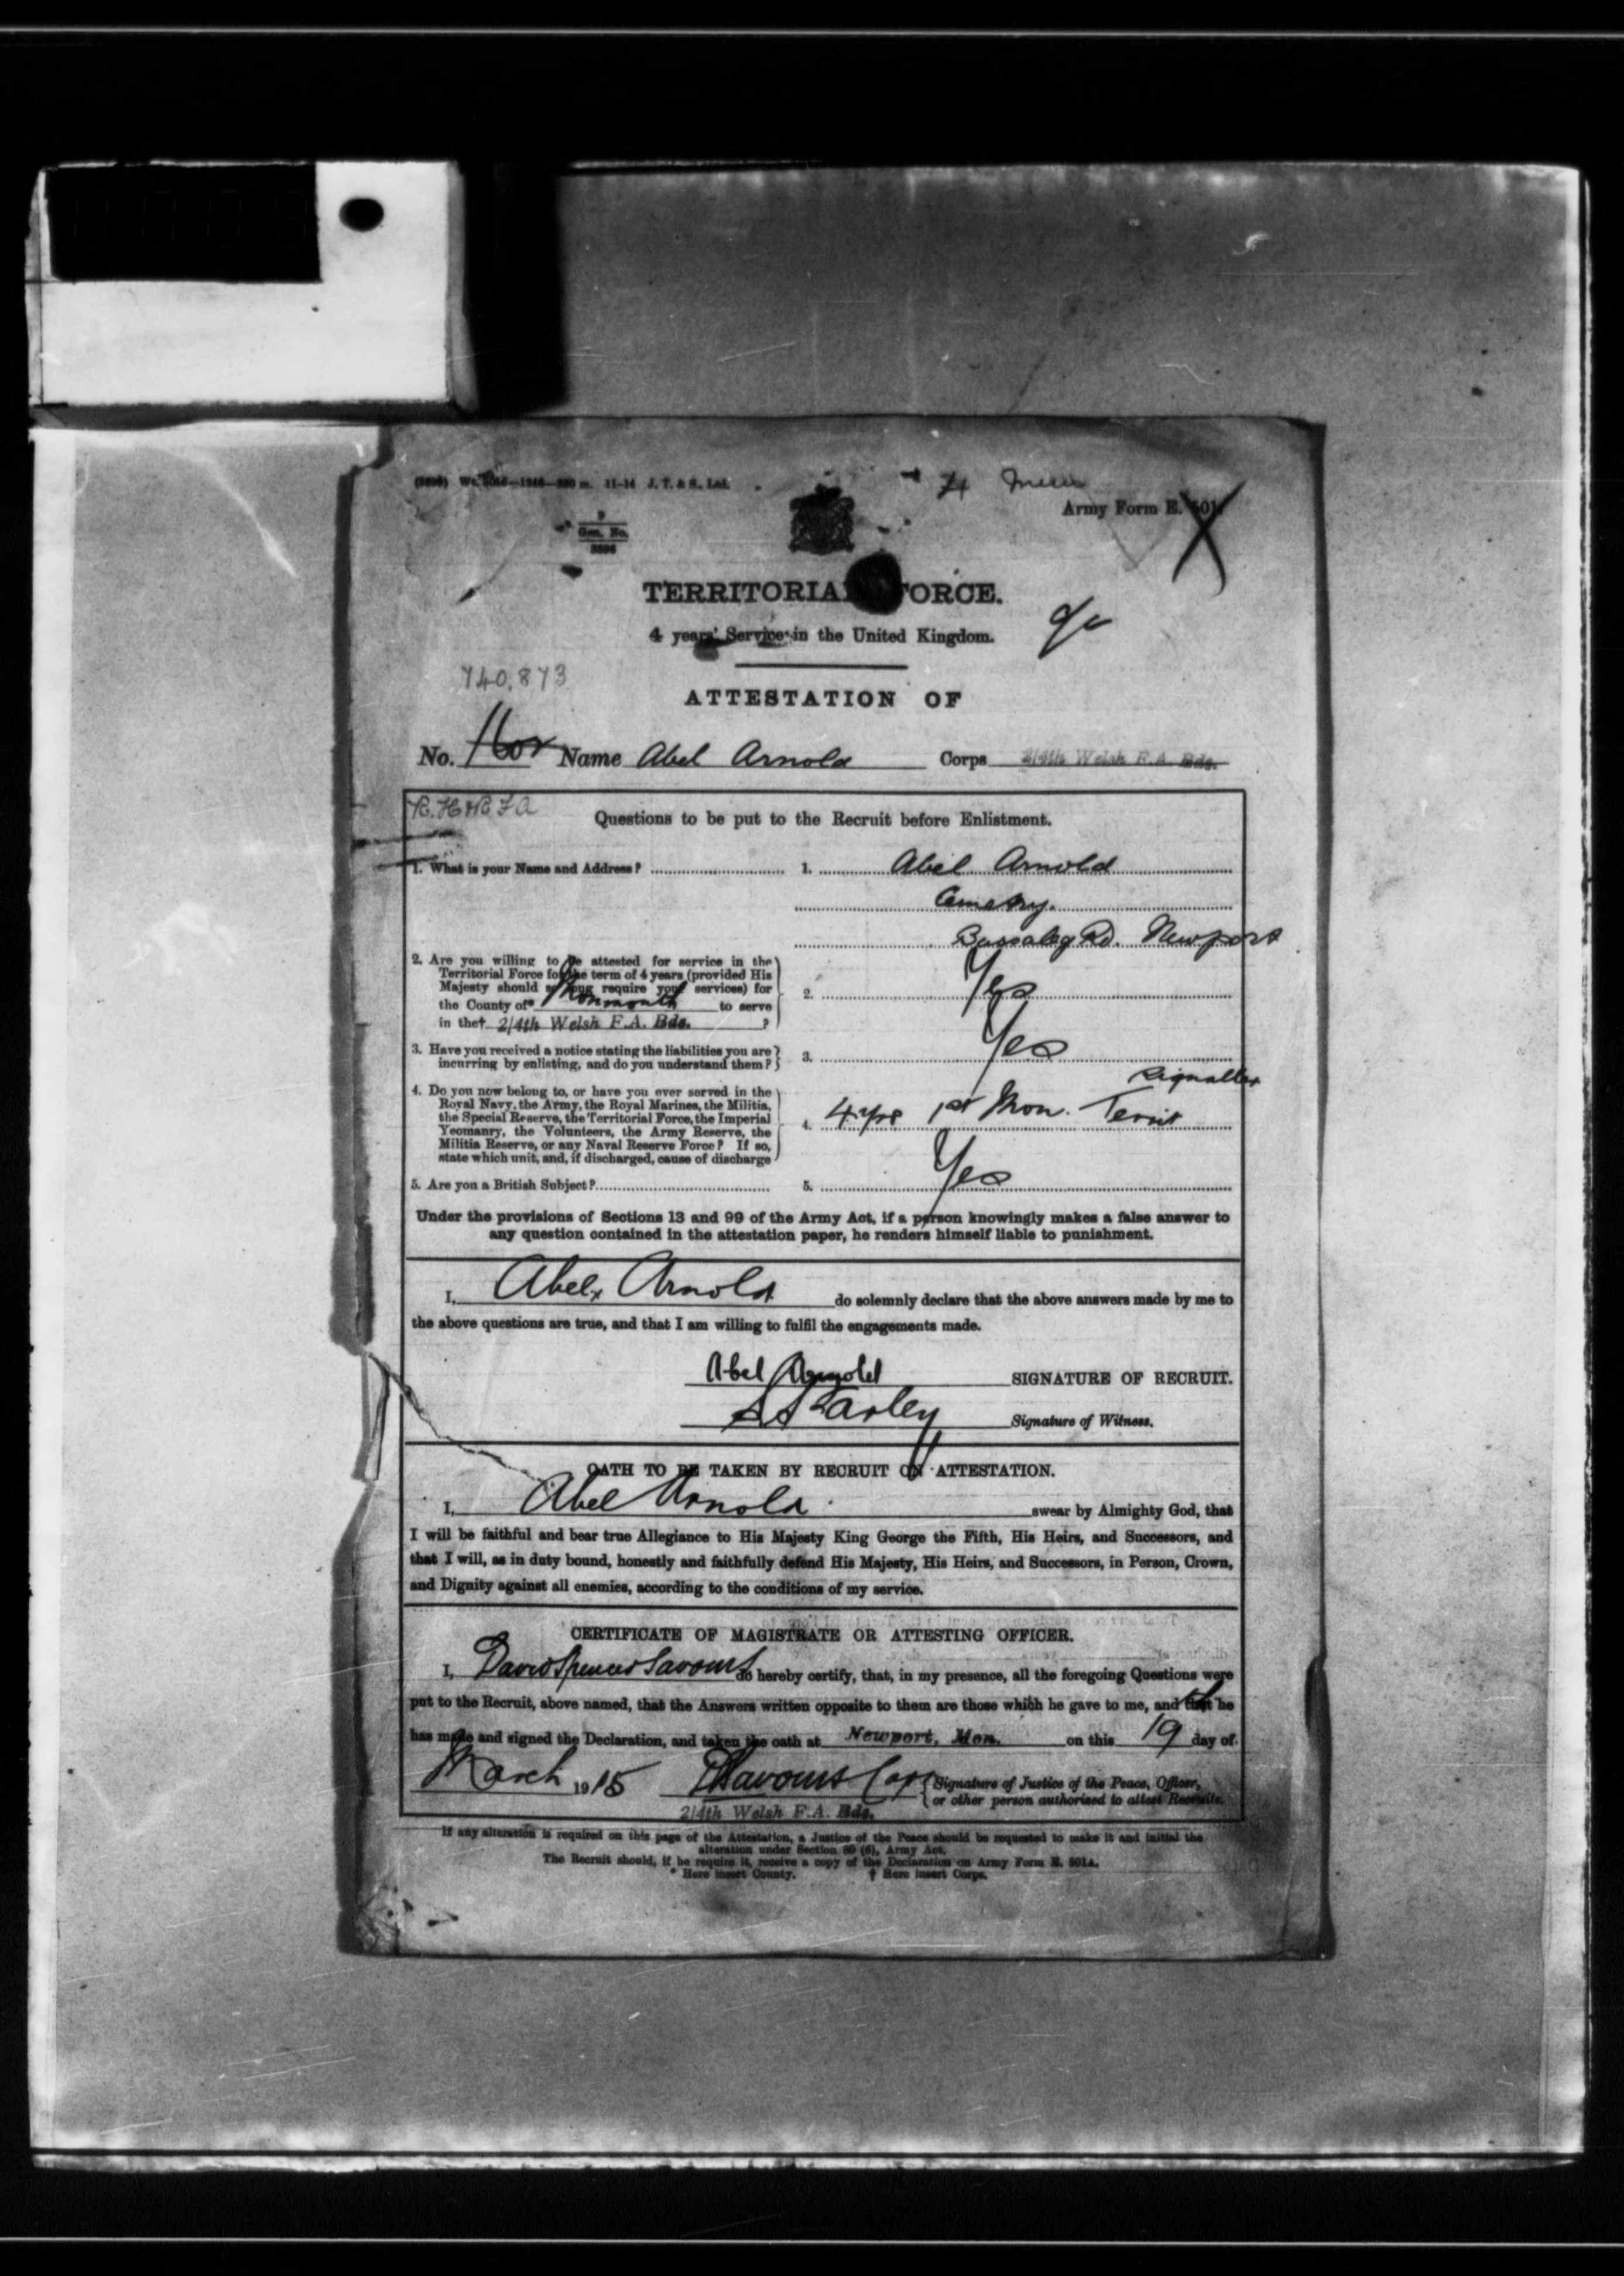 11-14 J. T. & S., Ltd.
Army Form E. 501.
9
Gen. No.
TERRITORIAL FORCE.
4 years' Service in the United Kingdom.
740,873
ATTESTATION OF
No. Name Abel Arnold Corps 2/4th Welsh F.A. Bde.
R.H & R F A
Questions to be put to the Recruit before Enlistment.
1. What is your Name and Address? 1. Abel Arnold
Cemetry.
Bassaleg Rd. Newport
2. Are you willing to be attested for service in the
Territorial Force for the term of 4 years (provided His
Majesty should so long require your services) for
the County of* Monmouth to serve
in the† 2/4th Welsh F.A. Bde. ?
2. Yes
3. Have you received a notice stating the liabilities you are
incurring by enlisting, and do you understand them?
3. Yes
4. Do you now belong to, or have you ever served in the
Royal Navy, the Army, the Royal Marines, the Militia,
the Special Reserve, the Territorial Force, the Imperial
Yeomanry, the Volunteers, the Army Reserve, the
Militia Reserve, or any Naval Reserve Force? If so,
state which unit, and, if discharged, cause of discharge
Signaller
4. 4 yrs 1st Mon. Territ
5. Are you a British Subject? 5. Yes
Under the provisions of Sections 13 and 99 of the Army Act, if a person knowingly makes a false answer to
any question contained in the attestation paper, he renders himself liable to punishment.
I, Abel Arnold do solemnly declare that the above answers made by me to
the above questions are true, and that I am willing to fulfil the engagements made.
Abel Arnold SIGNATURE OF RECRUIT.
Signature of Witness.
OATH TO BE TAKEN BY RECRUIT ON ATTESTATION.
I, Abel Arnold swear by Almighty God, that
I will be faithful and bear true Allegiance to His Majesty King George the Fifth, His Heirs, and Successors, and
that I will, as in duty bound, honestly and faithfully defend His Majesty, His Heirs, and Successors, in Person, Crown,
and Dignity against all enemies, according to the conditions of my service.
CERTIFICATE OF MAGISTRATE OR ATTESTING OFFICER.
I, David Spencer Savours do hereby certify, that, in my presence, all the foregoing Questions were
put to the Recruit, above named, that the Answers written opposite to them are those which he gave to me, and that he
has made and signed the Declaration, and taken the oath at Newport, Mon. on this 19 day of
March 1915 DSavours Capt Signature of Justice of the Peace, Officer,
or other person authorized to attest Recruits.
2/4th Welsh F.A. Bde.
If any alteration is required on this page of the Attestation, a Justice of the Peace should be requested to make it and initial the
alteration under Section 80 (6), Army Act.
The Recruit should, if he require it, receive a copy of the Declaration on Army Form E. 501A.
* Here insert County. † Here insert Corps.